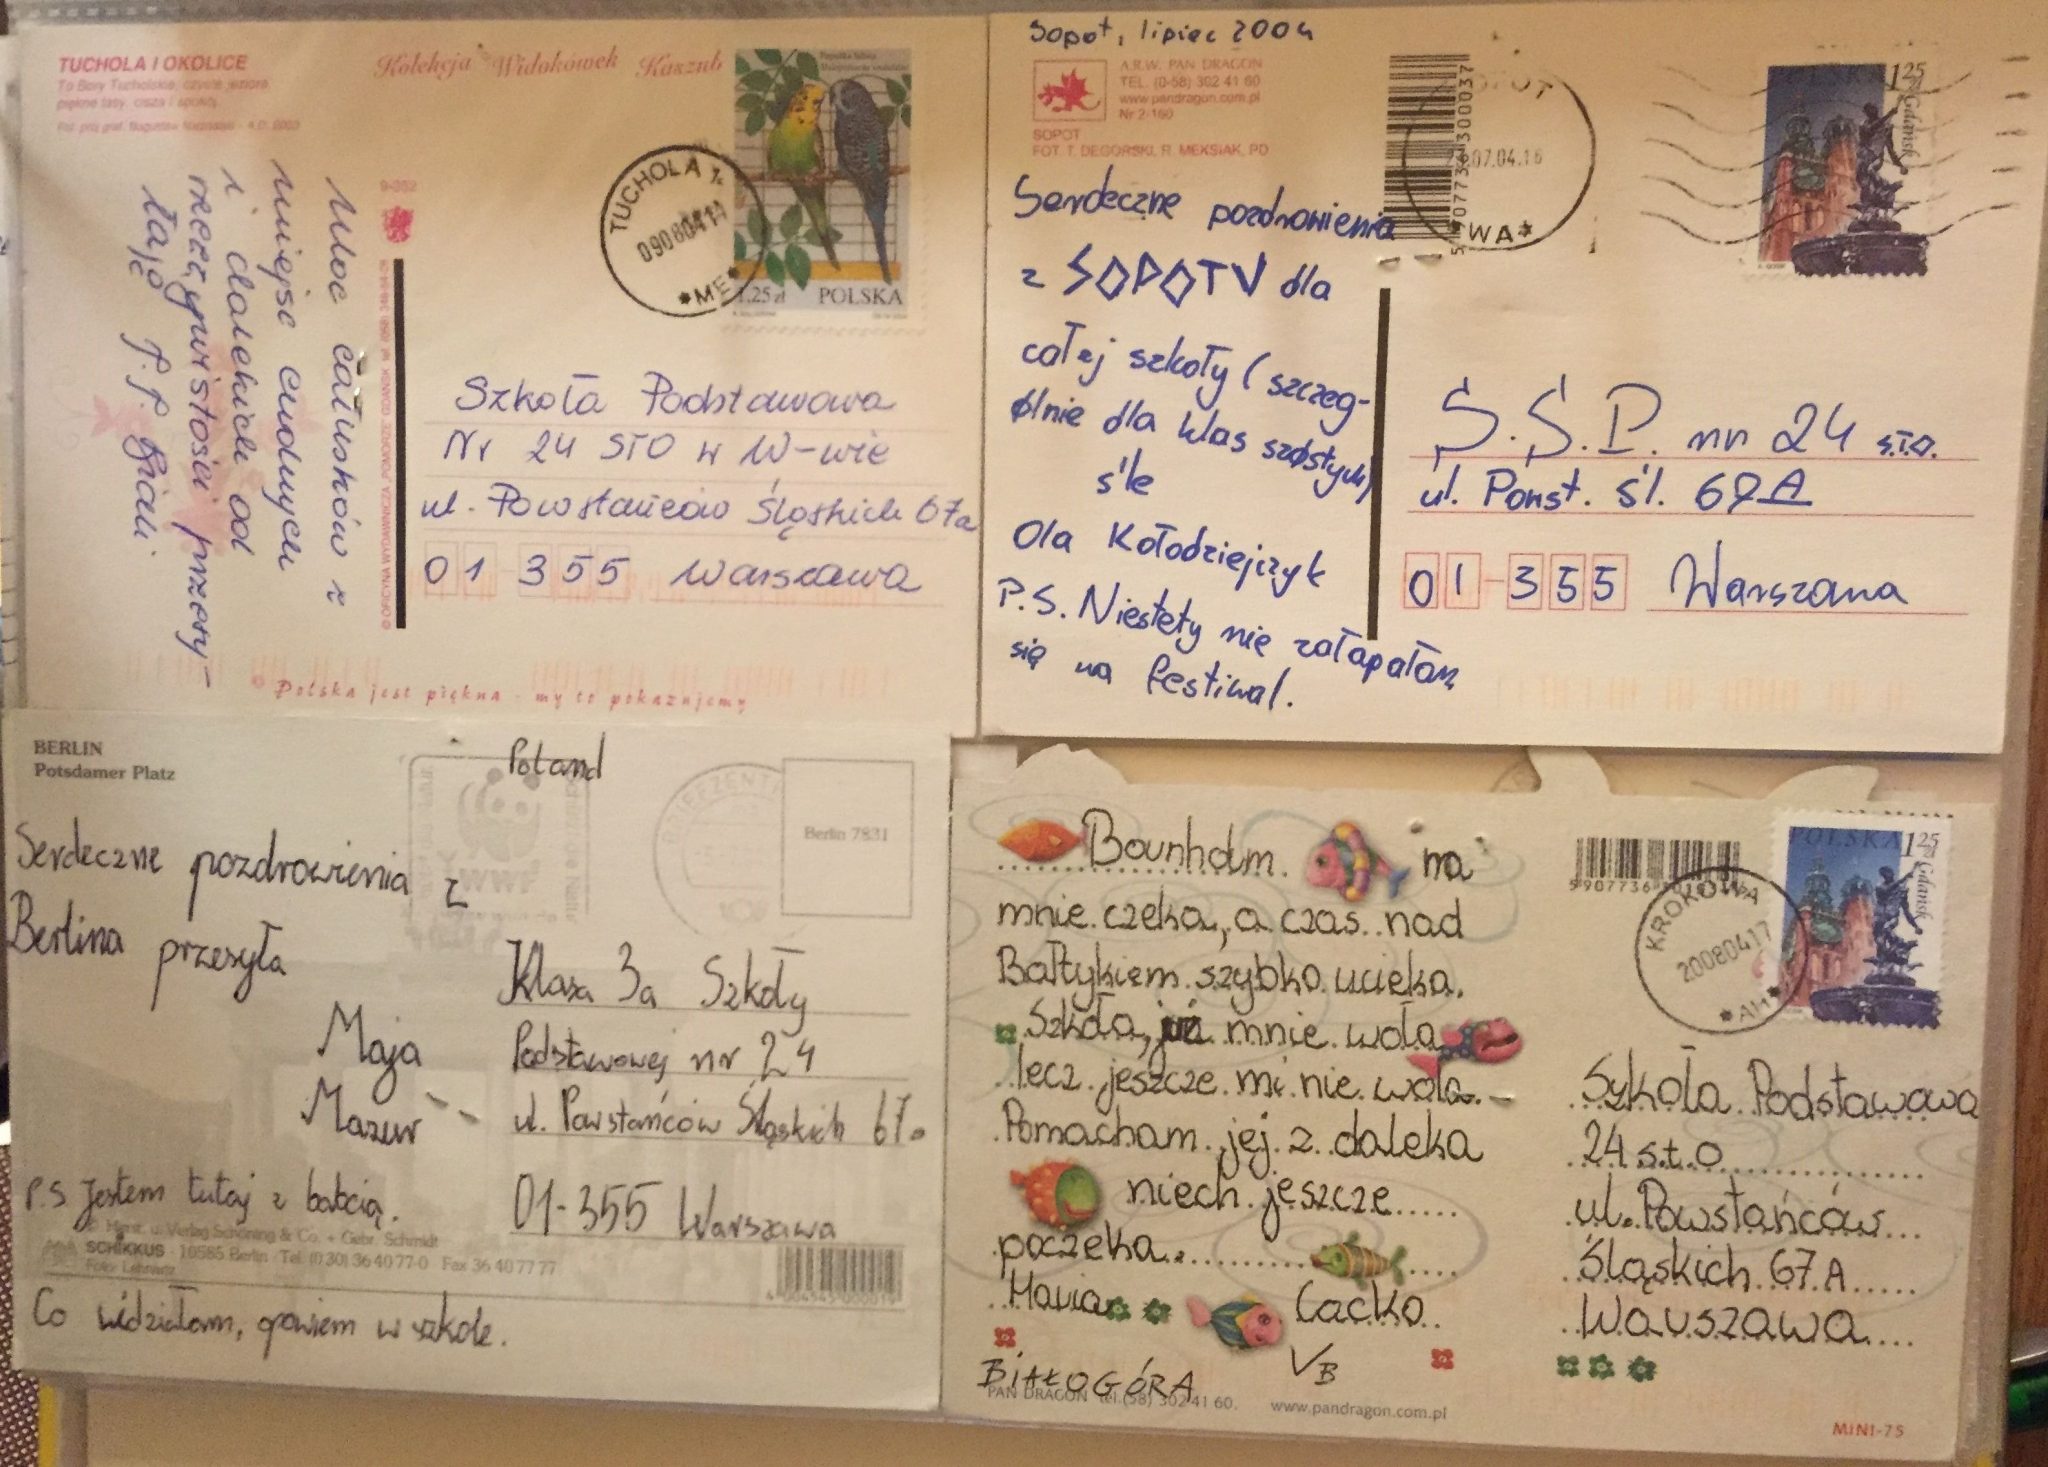 TUCHOLA I OKOLICE
To Bory Tucholskie, czyste jeziora,
piękne lasy, cisza i spokój.
Kolekcja Widokówek Kaszub
TUCHOLA 1
090804
*ME*
1.25 zł POLSKA
Moc całusków z
miejsc cudnych
i dalekich od
rzeczywistości przesy-
łają P.P.
Szkoła Podstawowa
Nr 24 STO w W-wie
ul. Powstańców Śląskich 67a
01 355 Warszawa
Polska jest piękna - my to pokazujemy
Sopot, lipiec 2004
A.R.W. PAN DRAGON
TEL. (0-58) 302 41 60
www.pandragon.com.pl
Nr 2-160
SOPOT
FOT. T. DEGÓRSKI, R. MEKSIAK, PD
07.04.16
*WA*
POLSKA 125
Gdańsk
Serdeczne pozdrowienia
z SOPOTU dla
całej szkoły (szczeg-
ólnie dla klas szóstych)
śle
Ola Kołodziejczyk
P.S. Niestety nie załapałam
się na festiwal.
S.S.P. nr 24 S.T.O.
ul. Powst. Śl. 67A
01-355 Warszawa
BERLIN
Potsdamer Platz
Poland
WWF
BRIEFZENT
Berlin 7831
Serdeczne pozdrowienia z
Berlina przesyła
Maja
Mazur
P.S Jestem tutaj z babcią.
Co widziałam, opowiem w szkole.
Klasa 3a Szkoły
Podstawowej nr 24
ul. Powstańców Śląskich 67a
01-355 Warszawa
Verlag Schöning & Co. + Gebr. Schmidt
SCHIKKUS · 10585 Berlin · Tel. (030) 36 40 77-0 Fax 36 40 77 77
Foto: Lehnartz
Bournholm na
mnie czeka, a czas nad
Bałtykiem szybko ucieka.
Szkoła, już mnie woła
lecz jeszcze mi nie wola.
Pomacham jej z daleka
niech jeszcze
poczeka.
Maria Cacko
VB
BIAŁOGÓRA
PAN DRAGON tel.(58) 302 41 60.
www.pandragon.com.pl
MINI-75
KROKOWA
20080417
POLSKA 125
Gdańsk
Szkoła Podstawowa
24 s.t.o
ul. Powstańców
Śląskich 67A
Warszawa